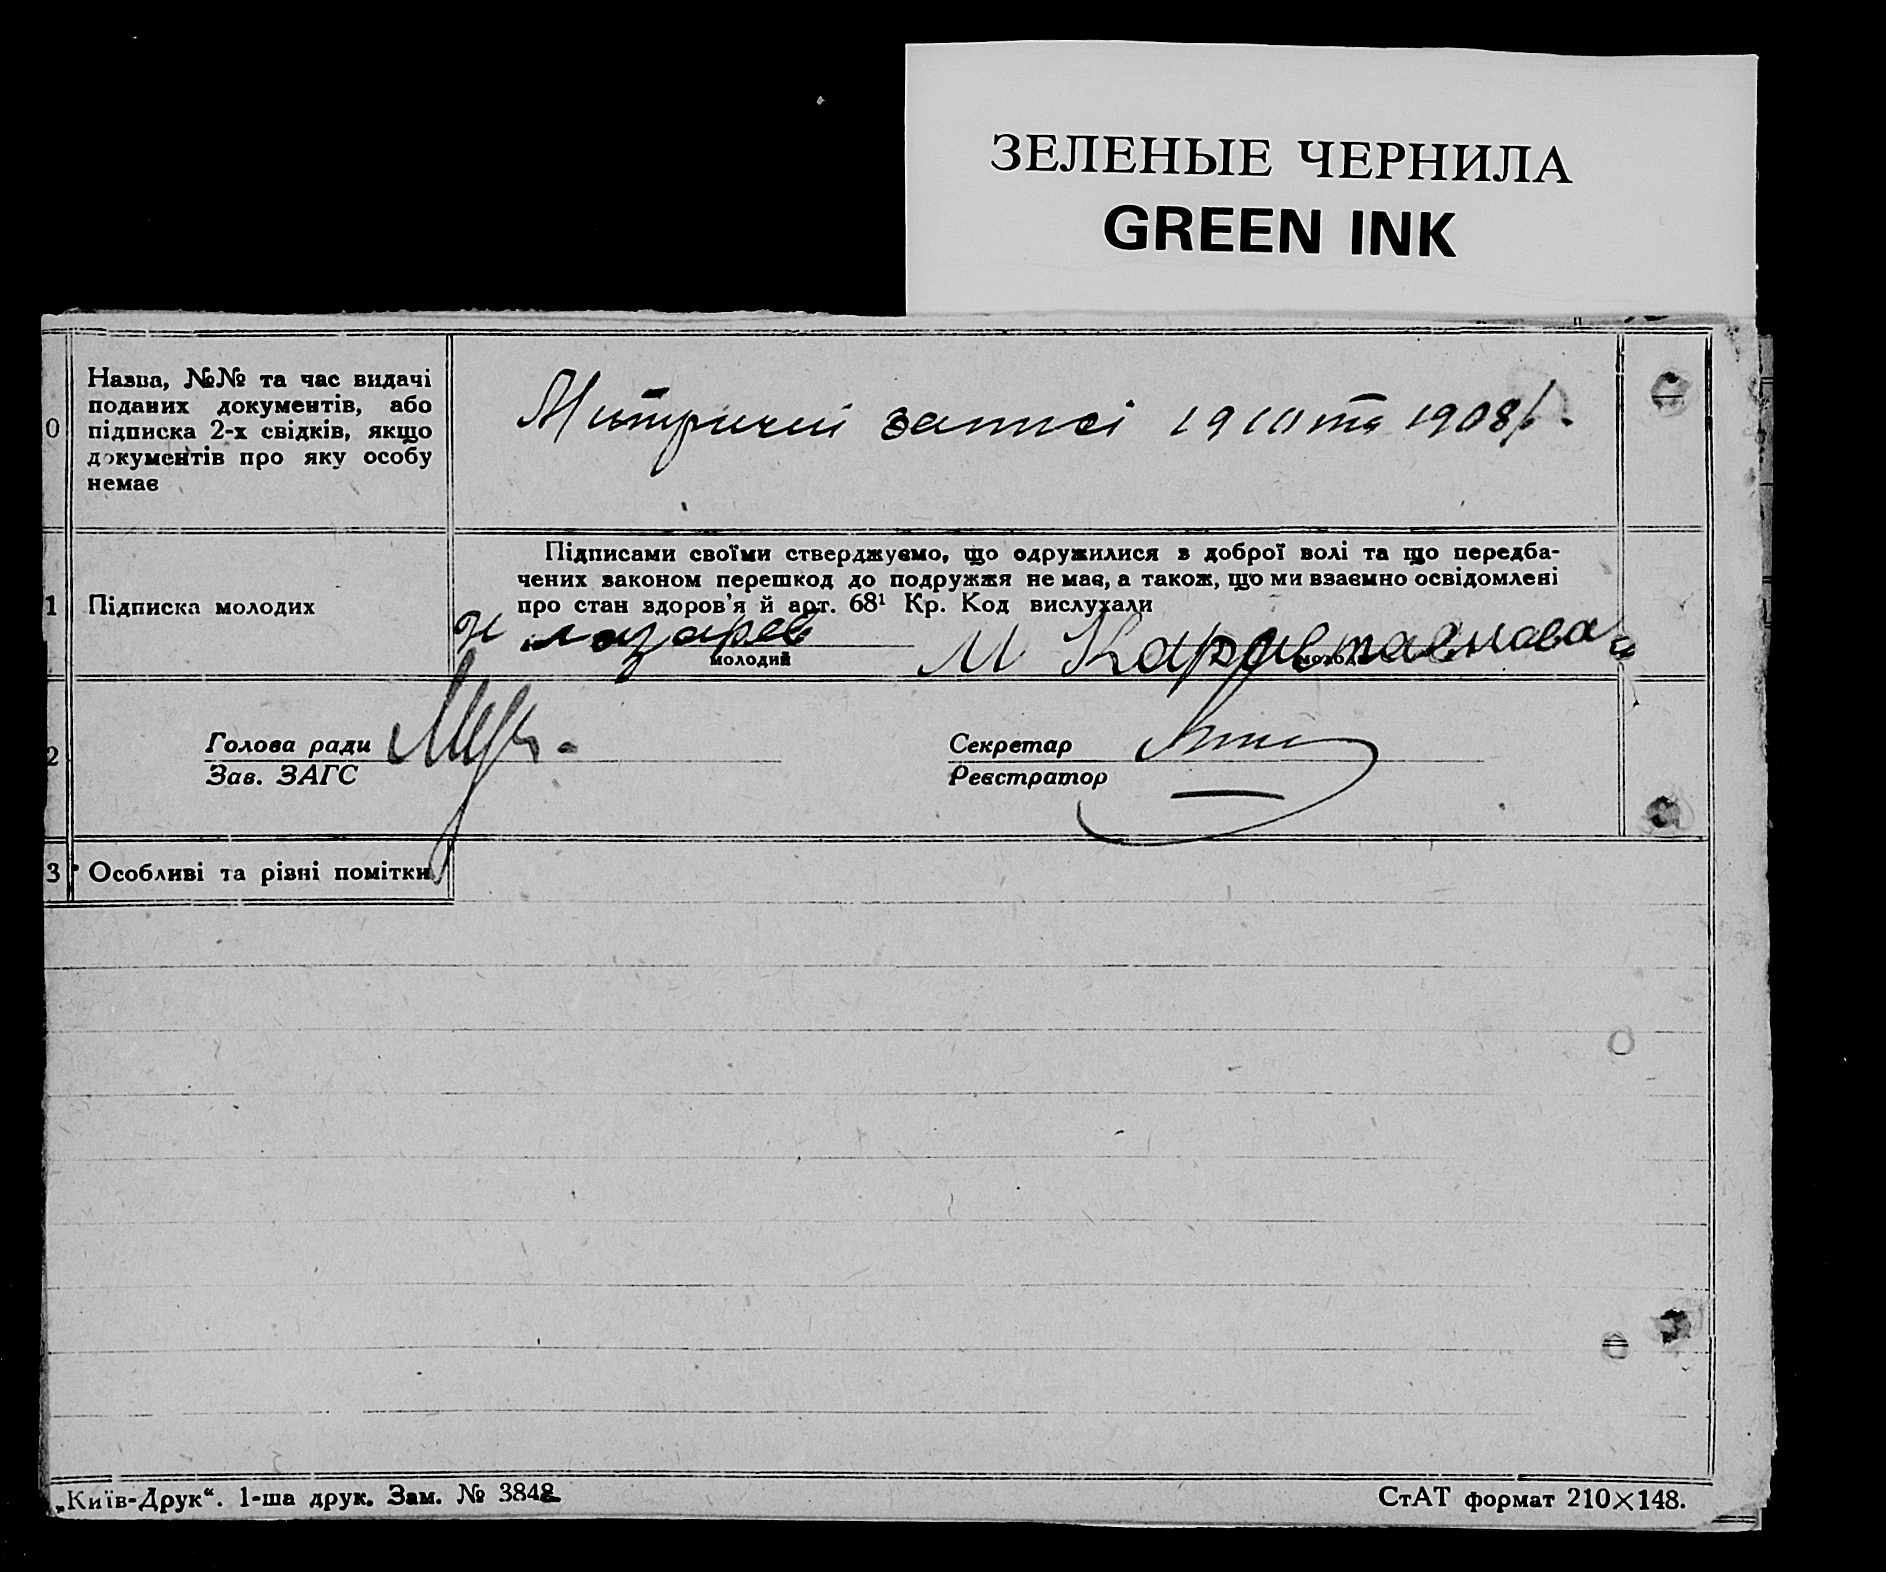 ЗЕЛЕНЫЕ ЧЕРНИЛА
GREEN INK
0
Назва, №№ та час видачі
поданих документів, або
підписка 2-х свідків, якщо
документів про яку особу
немає
Митричні записі 1910 та 1908 р.
1
Підписка молодих
Підписами своїми стверджуємо, що одружилися з доброї волі та що передба-
чених законом перешкод до подружжя не має, а також, що ми взаємно освідомлені
про стан здоров'я й арт. 68¹ Кр. Код вислухали
лазарев
М
молодий
молода
2
Голова ради
Зав. ЗАГС
Секретар
Реєстратор
3
Особливі та різні помітки
„Київ-Друк“. 1-ша друк. Зам. № 3842
СтАТ формат 210×148.